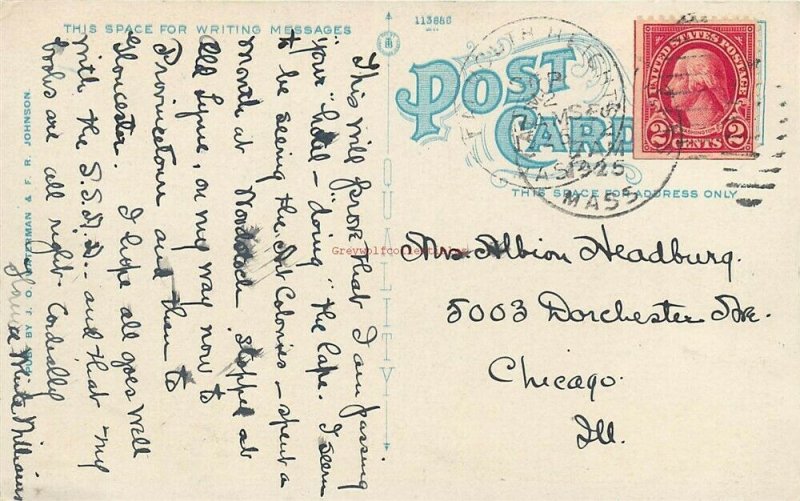 THIS SPACE FOR WRITING MESSAGES
113686
POST CARD
THIS SPACE FOR ADDRESS ONLY
UNITED STATES POSTAGE
2 CENTS 2
1925
MASS
This will prove that I am passing
"your" hotel - "doing" the Cape. I seem
to be seeing the Art Colonies - spent a
month at Woodstock. Stopped at
Old Lyme, on my way now to
Provincetown and then to
Gloucester. I hope all goes well
with the S.S.A.D. - and that my
books are all right. Cordially
White Williams
Albion Headburg.
5003 Dorchester Ave.
Chicago.
Ill.
QUALITY
BY J. O. & F. R. JOHNSON.
Greywolfcollectibles